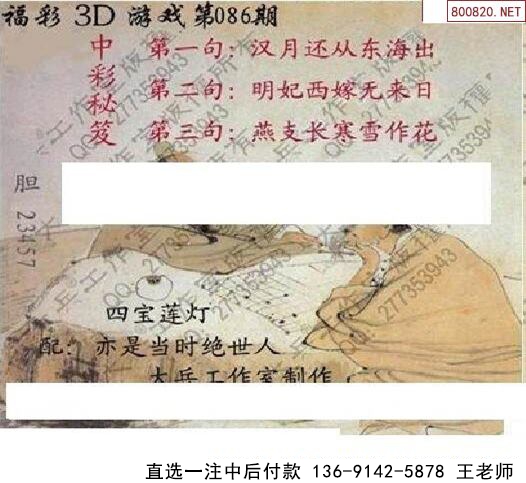 福彩 3D 游戏第086期
800820.NET
中彩秘笈
第一句：汉月还从东海出
第二句：明妃西嫁无来日
第三句：燕支长寒雪作花
胆 23457
四宝莲灯
配：亦是当时绝世人
大兵工作室制作
大兵工作室版权所有
QQ:277353943
直选一注中后付款 136-9142-5878 王老师